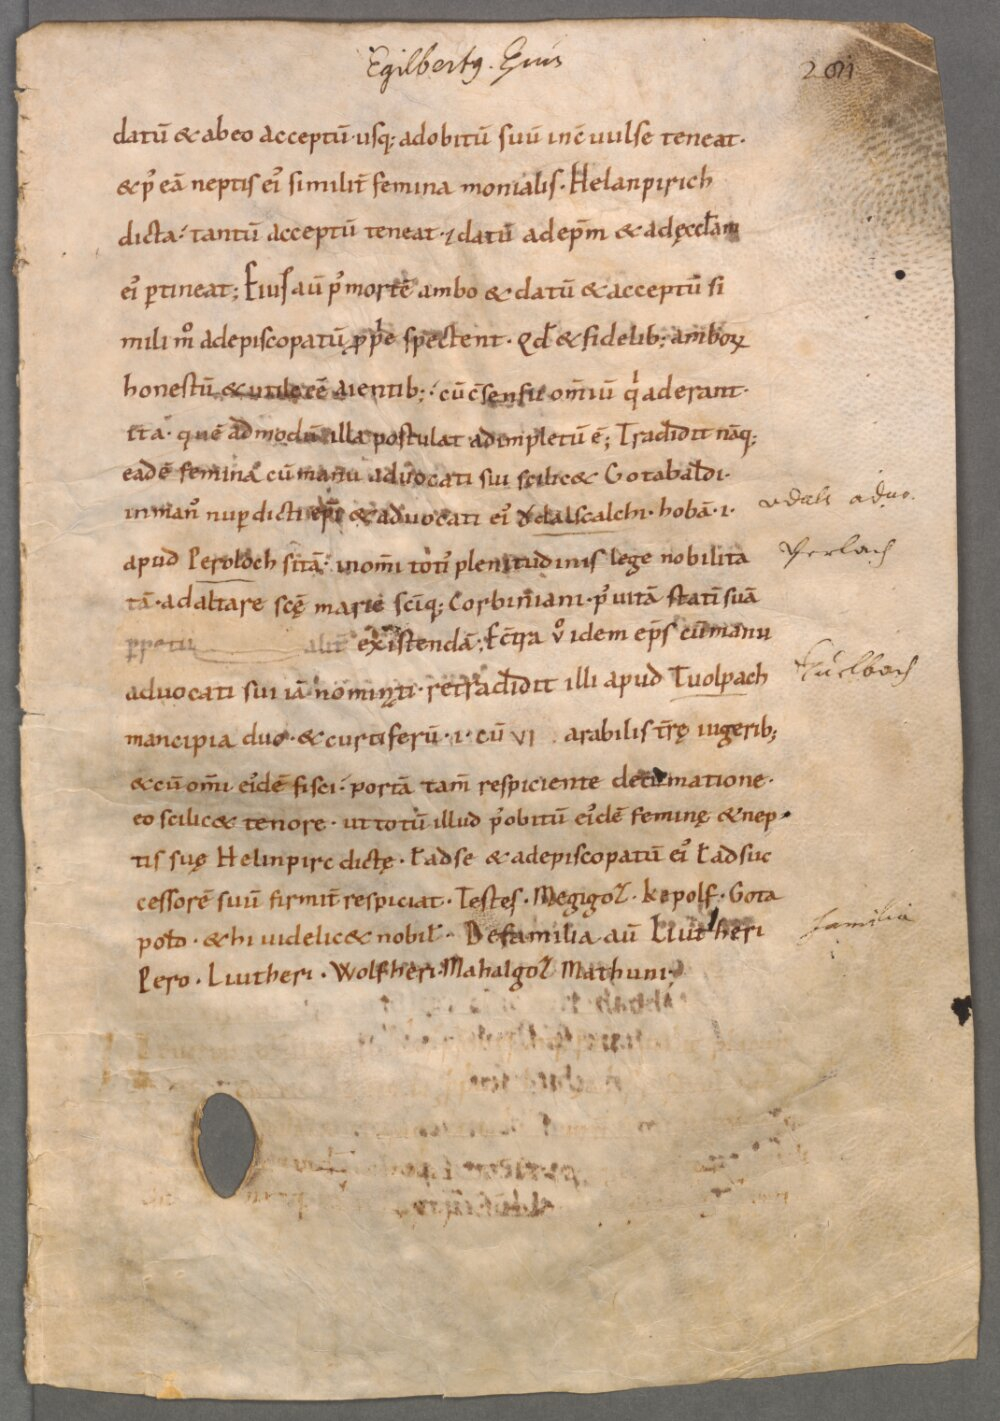 Egilbertꝰ. Epūs
201
datū & abeo acceptū· usq; adobitū suū incuulse teneat·
& p' eā neptis ei' similit̄ femina monialis· Helanpirich
dicta· tantū acceptū teneat· datū adep̄m & adęccl̄am
ei' ptineat; Eius aū p' mortē ambo & datū & acceptū si
mili m̊ adepiscopatū ꝓp̄e spectent· Qd̄ & fidelib; amboꝝ
honestū & utile eē aientib; cū c̄sensu om̄iū q' aderant·
ita· quē admodū illa postulat adimpletū ē; Tradidit nāq;
eadē femina cū manu aduocati sui scilic& Gotabaldi·
inman' nup dicti ep̄i & aduocati ei' Ŏdalscalchi· hobā· i·
udalr aduo.
apud Peroloch sitā· inom̄i toti' plenitudinis lege nobilita
Perlach
tā· adaltare scę marie sciq; Corbiniani· p' uitā statī suā
ppetu alit̄ existendā; Ec̄tra v̊ idem ep̄s cū manu
aduocati sui iā nominati· retradidit illi apud Tuolpach
Tuelbach
mancipia duo· & curtiferū· i· cū VI arabilis t̄rę iugerib;
& cū om̄i ei'dē fisci· portā tam̄ respiciente decimatione·
eo scilic& tenore· ut totū illud p' obitū ei'dē feminę & nep·
tis suę Helinpirc dictę· ł adse & adepiscopatū ei' ł adsuc
cessorē suū firmit̄ respiciat· Testes· Megigoz· Kepolf· Gota
pold· & hi uidelic& nobil̄· Defamilia aū Liutheri
familia
Pero· Liutheri· Wolfheri· Mahalgoz Mathuni·